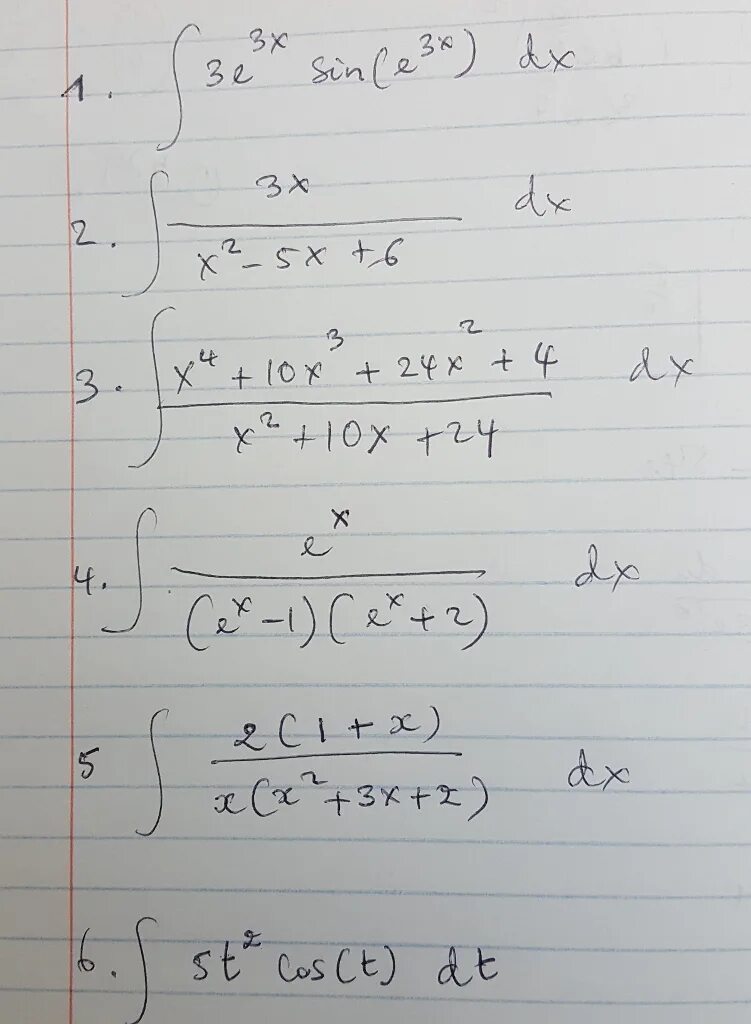 1. ∫ 3e^{3x} sin(e^{3x}) dx
2. ∫ \frac{3x}{x^2 - 5x + 6} dx
3. ∫ \frac{x^4 + 10x^3 + 24x^2 + 4}{x^2 + 10x + 24} dx
4. ∫ \frac{e^x}{(e^x - 1)(e^x + 2)} dx
5 ∫ \frac{2(1 + x)}{x(x^2 + 3x + 2)} dx
6. ∫ 5t^2 cos(t) dt